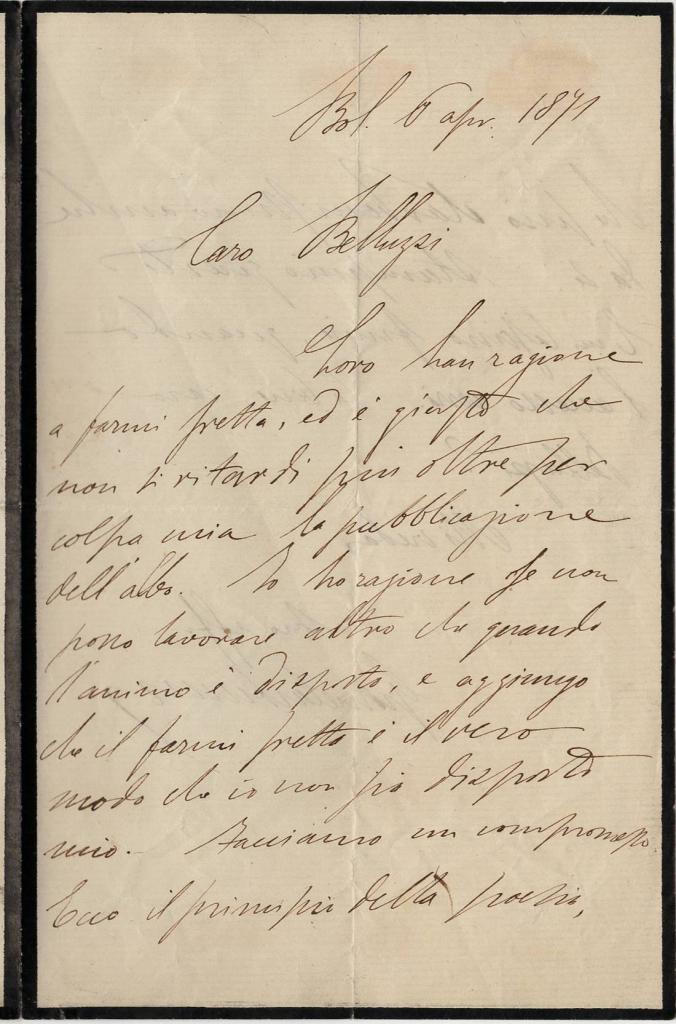 Bol. 6 apr. 1871
Caro Belluzzi
Loro han ragione
a farmi fretta, ed è giusto che
non si ritardi più oltre per
colpa mia la pubblicazione
dell'albo. Io ho ragione se non
posso lavorare altro che quando
l'animo è disposto, e aggiungo
che il farmi fretta è il vero
modo che io non sia disposto
mio. — Facciamo un compromesso.
Ecco il principio della poesia,